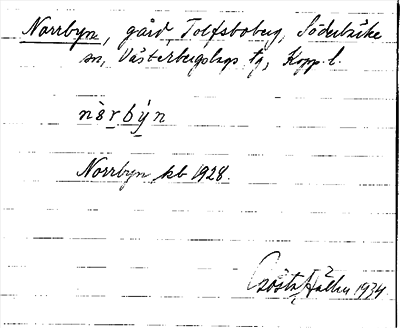 Norrbyn, gård, Tolfsboberg, Söderbärke
sn, Västerbergslags tg, Kopp. l.
nòrbýn
Norrbyn kb 1928.
Gösta Hällen 1934